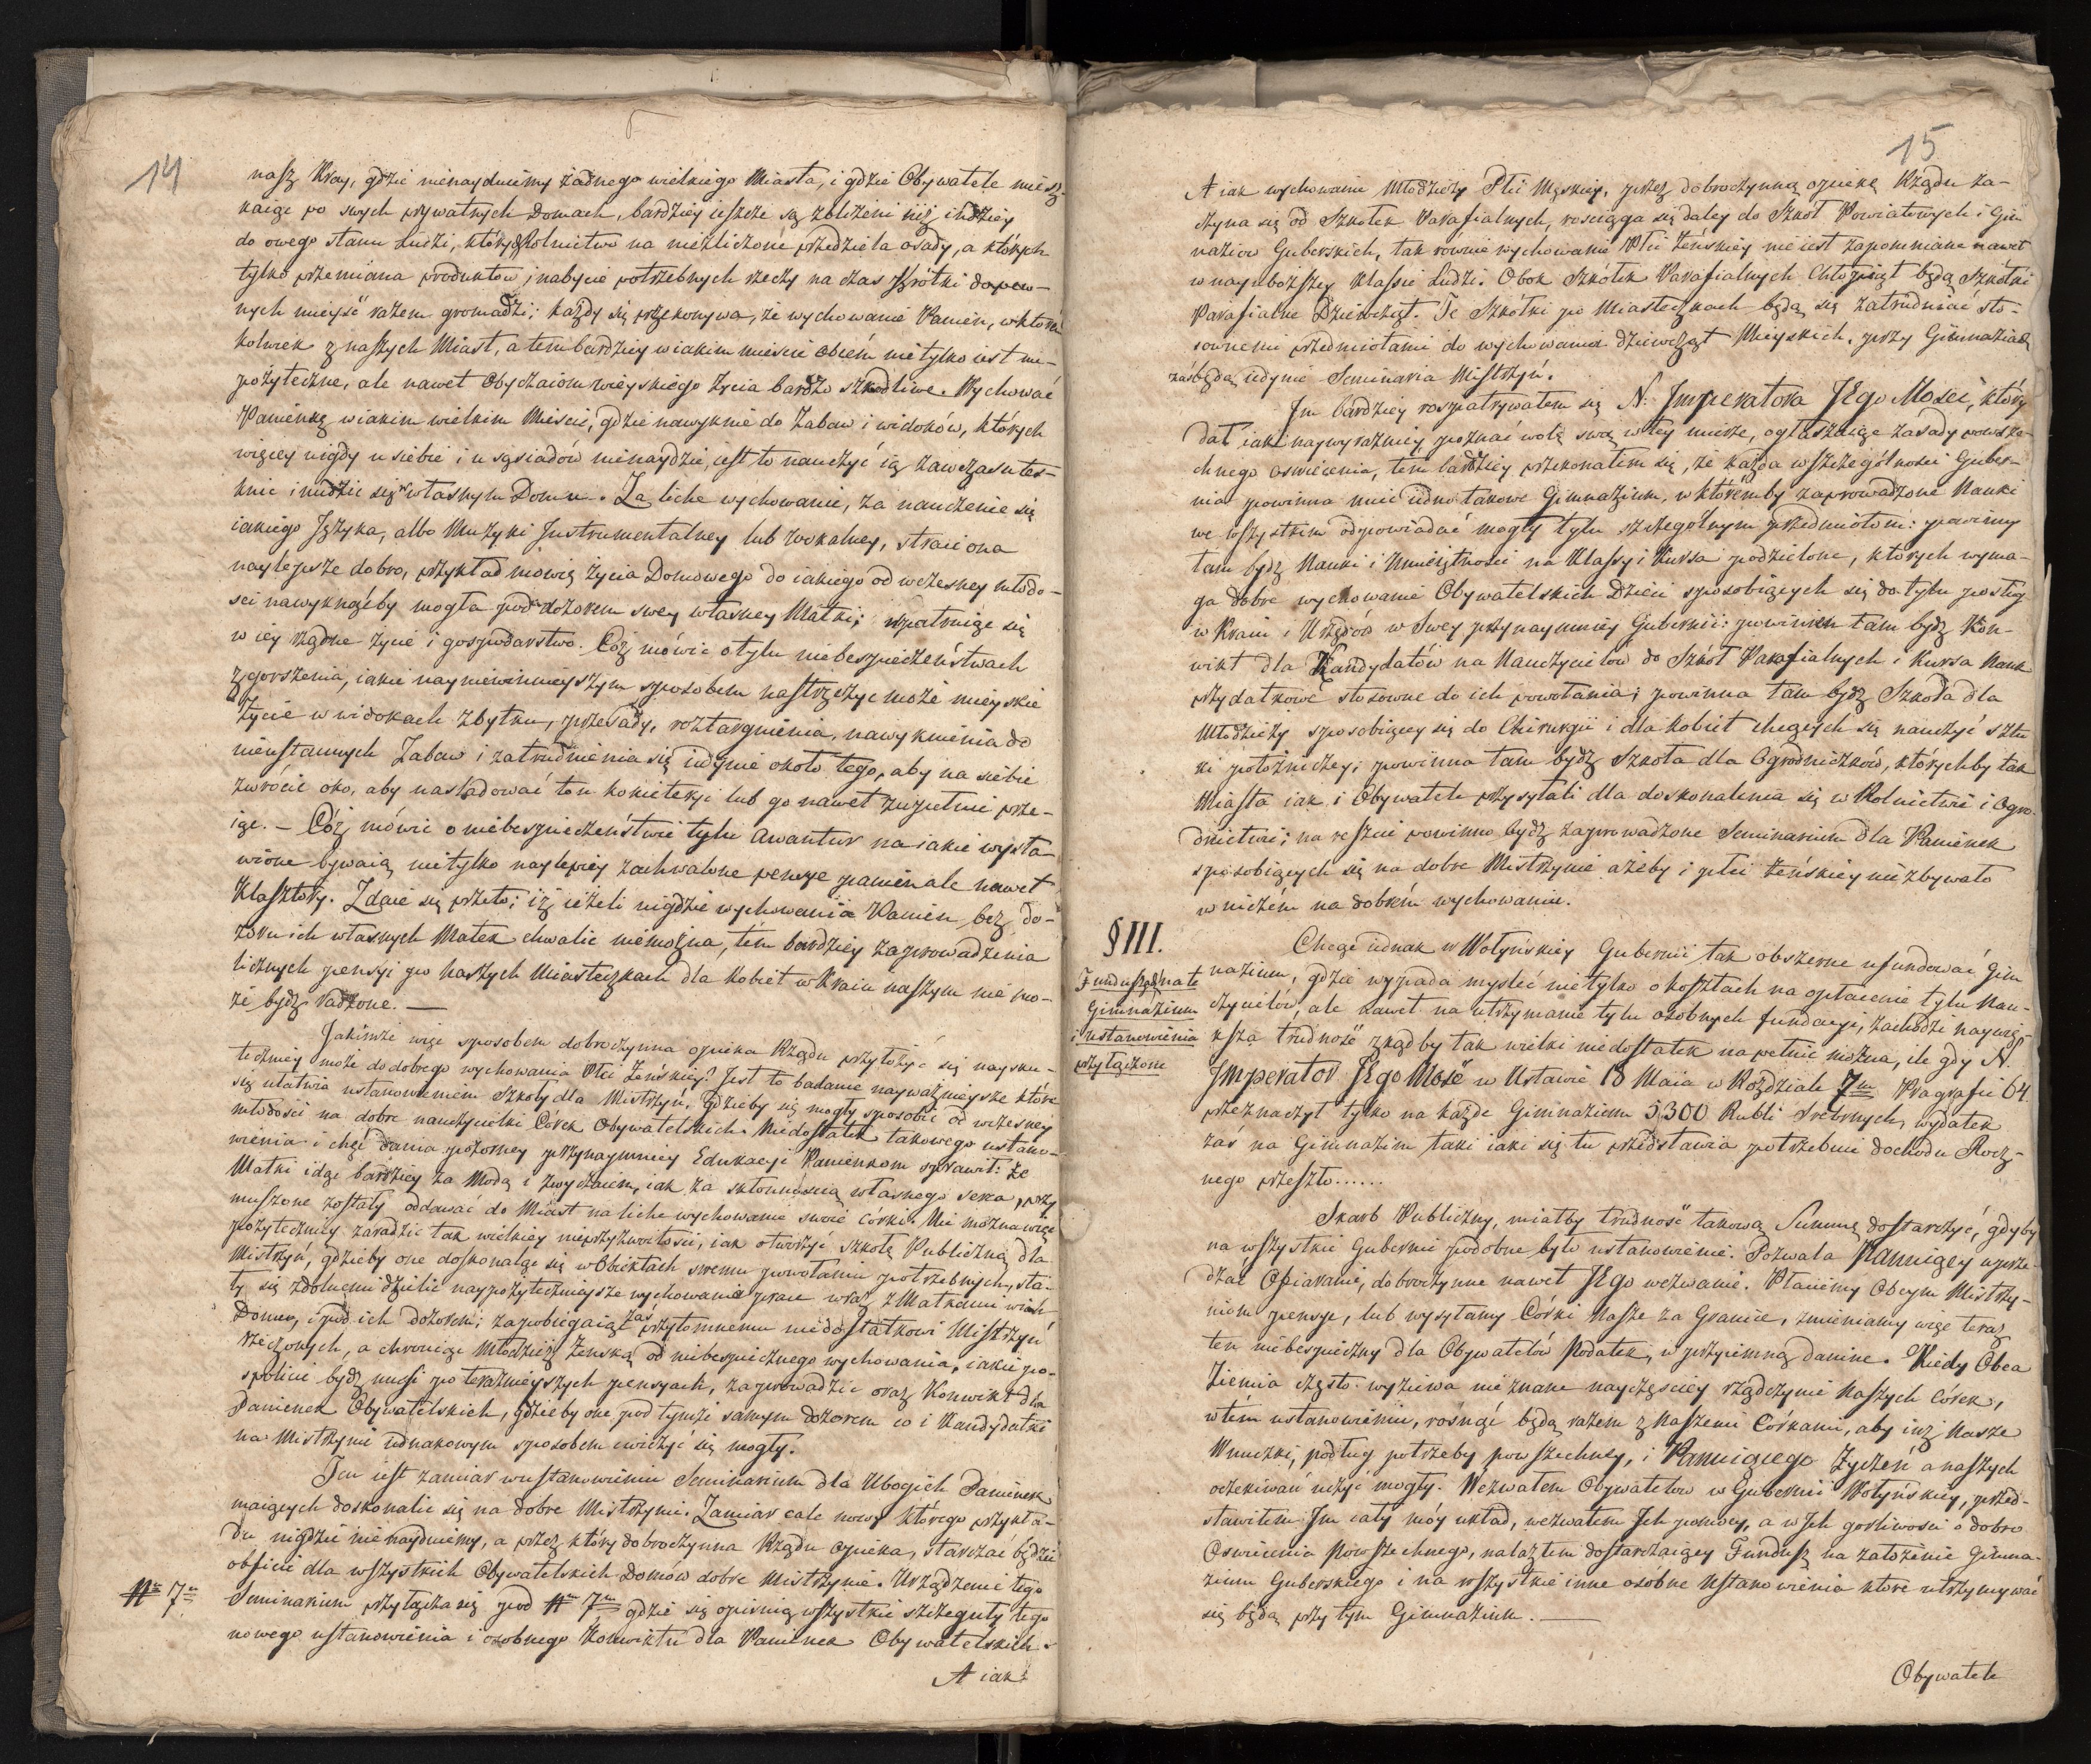 14
nasz Kray, gdzie nienayduiemy żadnego wielkiego Miasta, i gdzie Obywatele miesz-
kaiąc po swych prywatnych Domach, bardziey ieszcze są zbliżeni niż indziey
do owego stanu Ludzi, których Rolnictwo na niezliczone przedziela osady, a których
tylko przemiana produktow i nabycie potrzebnych rzeczy na czas krótki do pew-
nych mieysć razem gromadzi; każdy się przekonywa, że wychowanie Panien, w którem
kolwiek z naszych Miast, a tem bardziey w iakim mieście Obcém nie tylko iest nie-
pożyteczne, ale nawet Obyczaiom wieyskiego życia bardzo szkodliwe. Wychować
Panienkę w iakim wielkim Mieście, gdzie nawyknie do Zabaw i widoków, których
więcey nigdy u siebie i u sąsiadów nienaydzie, iest to nauczyć ią zawczasu tes-
knić i nudzić się w własnym Domu. Za liche wychowanie, za nauczenie się
iakiego Języka, albo Muzyki Instrumentalney lub wokalney, straci ona
naylepsze dobro, przykład mowię życia Domowego do iakiego od wczesney młodo-
sci nawyknąćby mogła pod dozorem swey własney Matki; wpatruiąc się
w iey rządne życie i gospodarstwo. Cóż mówić o tylu niebespieczeństwach
zgorszenia, iakie nayniewinnieyszym sposobem nastręczyć może mieyskie
życie w widokach zbytku, przesady, roztargnienia, nawyknienia do
nieustannych Zabaw i zatrudnienia się iedynie około tego, aby na siebie
zwrócić oko, aby nasladować ton kokieteryi lub go nawet zupełnie prze-
iąć. – Cóż mówić o niebespieczeństwie tylu awantur na iakie wysta-
wione bywaią nietylko naylepiey zachwalone pensye panien ale nawet
Klasztory. Zdaie się przeto; iż ieżeli nigdzie wychowania Panien bez do-
zoru ich własnych Matek chwalić niemożna, tem bardziey zaprowadzenia
licznych pensyi po naszych Miasteczkach dla Kobiet w Kraiu naszym nie mo-
że bydź radzone. —
Jakimże więc sposobem dobroczynna opieka Rządu przyłożyć się naysku-
teczniey może do dobrego wychowania Płci Żeńskiey? Jest to badanie nayważnieysze które
się ułatwia ustanowieniem Szkoły dla Mistrzyń, gdzieby się mogły sposobić od wczesney
młodości na dobre nauczycielki Córek Obywatelskich. Niedostatek takowego ustano-
wienia i chęć dania pozorney przynaymniey Edukacyi Panienkom sprawił: że
Matki idąc bardziey za Modą i zwyczaiem, iak za skłonnością własnego serca, przy
muszone zostały oddawać do Miast na liche wychowanie swoie córki. Nie można więc
pożyteczniey zaradzić tak wielkiey nieprzyzwoitości, iak otworzyć szkołę Publiczną dla
Mistrzyń, gdzieby one doskonaląc się w Obiektach swemu powołaniu potrzebnych, sta-
ły się zdolnemi dzielić naypożytecznieysze wychowania prace wraz z Matkami w ich
Domu, i pod ich dozorem; zapobiegaiąc zaś przytomnemu niedostatkowi Mistrzyń
rzeczonych, a chroniąc Młodzież Żeńską od niebespiecznego wychowania, iakie po-
spolicie bydź musi po teraźnieyszych pensyach, zaprowadzić oraz Konwikt dla
Panienek Obywatelskich, gdzieby one pod tymże samym dozorem co i Kandydatki
na Mistrzynie iednakowym sposobem cwiczyć się mogły.
Ten iest zamiar w ustanowieniu Seminarium dla Ubogich Panienek
maiących doskonalić się na dobre Mistrzynie. Zamiar całe nowy którego przykła-
du nigdzie nie nayduiemy, a przez który dobroczynna Rządu Opieka, starczać będzie
obficie dla wszystkich Obywatelskich Domów dobre Mistrzynie. Urządzenie tego
Nro 7m
Seminarium przyłącza się pod Nro 7m gdzie się opisuią wszystkie szczeguły tego
nowego ustanowienia i osobnego Konwiktu dla Panienek Obywatelskich.
A iak
15
A iak wychowanie Młodzieży Płci Męskiey, przez dobroczynną opiekę Rządu za-
czyna się od Szkołek Parafialnych, rosciąga się daley do Szkoł Powiatowych i Gim
naziow Guberskich, tak rownie wychowanie Płci Żeńskiey nie iest zapomniane nawet
w nayuboższey Klassie Ludzi. Obok Szkółek Parafialnych Chłopiąt będą Szkółki
Parafialne Dziewcząt. Te Szkółki po Miasteczkach będą się zatrudniać sto-
sownemi przedmiotami do wychowania dziewcząt Mieyskich, przy Gimnaziach
zaś będą iedynie Seminaria Mistrzyń.
Im bardziey rospatrywałem się N. Imperatora JEgo Mosci, który
dał iak naywyraźniey poznać wolę swą w tey mierze, ogłaszaiąc zasady powsze-
chnego oswiecenia, tem bardziey przekonałem się, że każda w szczególności Guber-
nia powinna mieć iedno takowe Gimnazium, w którémby zaprowadzone Nauki
we wszystkim odpowiadać mogły tylu szczególnym przedmiotom: powinny
tam bydź Nauki i Umieiętności na Klassy i Kursa podzielone, których wyma-
ga dobre wychowanie Obywatelskich Dzieci sposobiących się do tylu posług
w Kraiu i Urzędów w Swey przynaymniey Gubernii: powinien tam bydź Kon-
wikt dla Kandydatów na Nauczycielów do Szkół Parafialnych i Kursa Nauk
przydatkowe stosowne do ich powołania; powinna tam bydź Szkoła dla
Młodzieży sposobiącey się do Chirurgii i dla kobiet chcących się nauczyć sztu
ki położniczey; powinna tam bydź Szkoła dla Ogrodniczków, którychby tak
Miasta iak i Obywatele przysyłali dla doskonalenia się w Rolnictwie i Ogro-
dnictwie; na reszcie powinno bydź zaprowadzone Seminarium dla Panienek
sposobiących się na dobre Mistrzynie ażeby i płci żeńskiey niezbywało
w niczém na dobrém wychowaniu.
§ III.
Fundusz na te
Gimnazium
i ustanowienia
przyłączone
Chcąc iednak w Wołyńskiey Gubernii tak obszerne ufundować Gim
nazium, gdzie wypada mysleć nietylko o kosztach na opłacenie tylu Nau-
czycielów, ale nawet na utrzymanie tylu osóbnych fundacyi, zachodzi naywię-
ksza trudność zkądby tak wielki niedostatek napełnić można, ile gdy N.
Imperator JEgo Mość w Ustawie 18 Maia w Rozdziale 7m Pragrafie 64.
przeznaczył tylko na każde Gimnazium 5300 Rubli Srebrnych, wydatek
zaś na Gimnazium taki iaki się tu przedstawia potrzebuie dochodu Rocz-
nego przeszło......
Skarb Publiczny, miałby trudność takową Summę dostarczyć, gdyby
na wszystkie Gubernie podobne było ustanowienie. Pozwala Panuiący uprze-
dzać Ofiaranie, dobroczynne nawet JEgo wezwanie. Płacimy Obcym Mistrzy-
niom pensye, lub wysyłamy Córki Nasze za Granice, zmieniamy więc teraz
ten niebespieczny dla Obywatelów Podatek, w przyiemną daninę. Kiedy Obca
Ziemia często wyżywa nieznane nayczęściey rządczynie Naszych Córek,
w tém ustanowieniu, rosnąć będą razem z Naszemi Córkami, aby iuż Nasze
Wnuczki, podług potrzeby powszechney, i Panuiącego Życzeń a naszych
oczekiwań użyć mogły. Wezwałem Obywatelow w Gubernii Wołyńskiey, przed-
stawiłem Im cały móy układ, wezwałem Ich pomocy, a w Ich gorliwości o dobro
Oswiecenia Powszechnego, nalazłem dostarczaiący Fundusz na założenie Gimna-
zium Guberskiego i na wszystkie inne osobne ustanowienia ktore utrzymywać
się będą przy tym Gimnazium. —
Obywatele